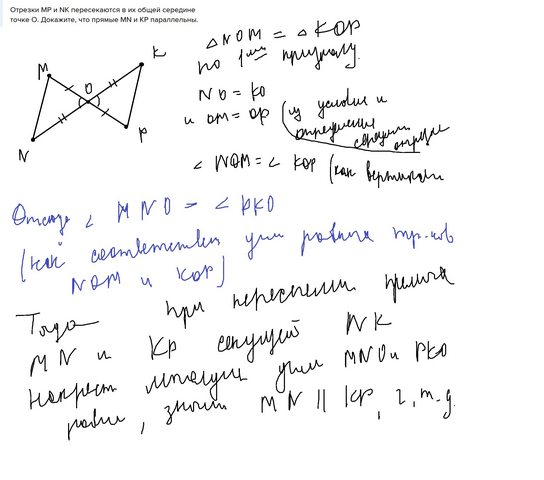 Отрезки MP и NK пересекаются в их общей середине
точке O. Докажите, что прямые MN и KP параллельны.
△NOM = △KOP
по 1ому признаку.
K
M
O
P
N
NO = KO
и OM = OP (из условия и
определения
середины
отрезка
∠ NOM = ∠ KOP (как вертикальн
Отсюда ∠ MNO = ∠ PKO
(как соответствен углы равных тр-ков
NOM и KOP)
Тогда при пересечении прямых
MN и KP секущей NK
накрест лежащие углы MNO и PKO
равны, значит MN || KP, ч.т.д.